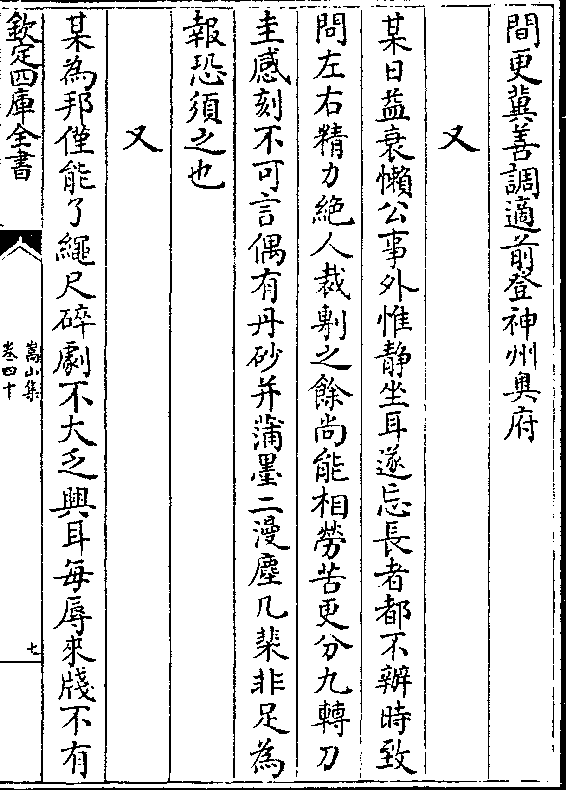 間更冀善調適前登神州奥府
又
某日益衰懶公事外惟静坐耳遂忘長者都不辦時致
問左右精力絶人裁剸之餘尚能相勞苦更分九轉刀
圭感刻不可言偶有丹砂并蒲墨二漫塵几棐非足為
報恐須之也
又
某為邦僅能了繩尺碎劇不大乏興耳每辱來牋不有
欽定四庫全書
嵩山集
卷四十
七